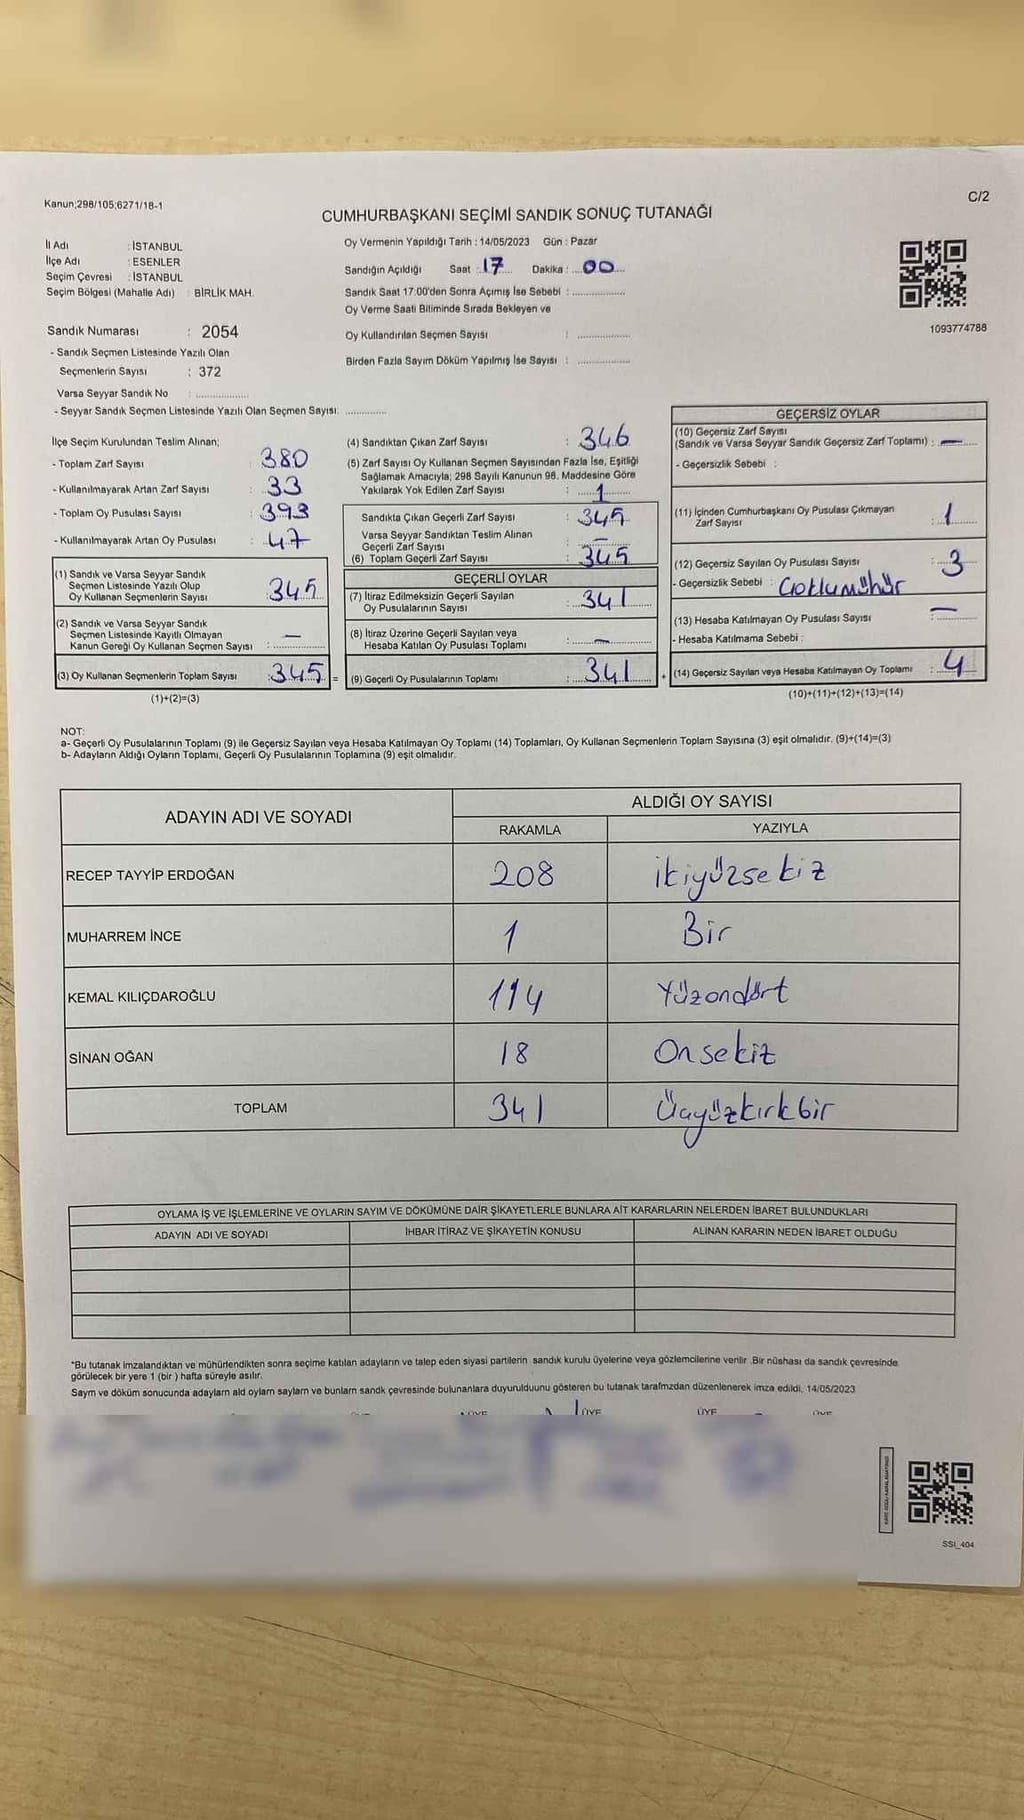 Kanun;298/105;6271/18-1
C/2
CUMHURBAŞKANI SEÇİMİ SANDIK SONUÇ TUTANAĞI
İl Adı : İSTANBUL
İlçe Adı : ESENLER
Seçim Çevresi : İSTANBUL
Seçim Bölgesi (Mahalle Adı) : BİRLİK MAH.
Oy Vermenin Yapıldığı Tarih : 14/05/2023 Gün : Pazar
Sandığın Açıldığı Saat : 17 Dakika : 00
Sandık Saat 17:00'den Sonra Açımış İse Sebebi :
Oy Verme Saati Bitiminde Sırada Bekleyen ve
Oy Kullandırılan Seçmen Sayısı :
Birden Fazla Sayım Döküm Yapılmış İse Sayısı :
1093774788
Sandık Numarası : 2054
- Sandık Seçmen Listesinde Yazılı Olan
Seçmenlerin Sayısı : 372
Varsa Seyyar Sandık No :
- Seyyar Sandık Seçmen Listesinde Yazılı Olan Seçmen Sayısı:
İlçe Seçim Kurulundan Teslim Alınan;
- Toplam Zarf Sayısı : 380
- Kullanılmayarak Artan Zarf Sayısı : 33
- Toplam Oy Pusulası Sayısı : 393
- Kullanılmayarak Artan Oy Pusulası : 47
(1) Sandık ve Varsa Seyyar Sandık
Seçmen Listesinde Yazılı Olup
Oy Kullanan Seçmenlerin Sayısı : 345
(2) Sandık ve Varsa Seyyar Sandık
Seçmen Listesinde Kayıtlı Olmayan
Kanun Gereği Oy Kullanan Seçmen Sayısı : —
(3) Oy Kullanan Seçmenlerin Toplam Sayısı : 345 =
(1)+(2)=(3)
(4) Sandıktan Çıkan Zarf Sayısı : 346
(5) Zarf Sayısı Oy Kullanan Seçmen Sayısından Fazla İse, Eşitliği
Sağlamak Amacıyla; 298 Sayılı Kanunun 98. Maddesine Göre
Yakılarak Yok Edilen Zarf Sayısı : 1
Sandıkta Çıkan Geçerli Zarf Sayısı : 345
Varsa Seyyar Sandıktan Teslim Alınan
Geçerli Zarf Sayısı : —
(6) Toplam Geçerli Zarf Sayısı : 345
GEÇERLİ OYLAR
(7) İtiraz Edilmeksizin Geçerli Sayılan
Oy Pusulalarının Sayısı : 341
(8) İtiraz Üzerine Geçerli Sayılan veya
Hesaba Katılan Oy Pusulası Toplamı : —
(9) Geçerli Oy Pusulalarının Toplamı : 341 +
GEÇERSİZ OYLAR
(10) Geçersiz Zarf Sayısı
(Sandık ve Varsa Seyyar Sandık Geçersiz Zarf Toplamı) : —
- Geçersizlik Sebebi :
(11) İçinden Cumhurbaşkanı Oy Pusulası Çıkmayan
Zarf Sayısı : 1
(12) Geçersiz Sayılan Oy Pusulası Sayısı : 3
- Geçersizlik Sebebi : Çoklumühür
(13) Hesaba Katılmayan Oy Pusulası Sayısı : —
- Hesaba Katılmama Sebebi :
(14) Geçersiz Sayılan veya Hesaba Katılmayan Oy Toplamı : 4
(10)+(11)+(12)+(13)=(14)
NOT:
a- Geçerli Oy Pusulalarının Toplamı (9) ile Geçersiz Sayılan veya Hesaba Katılmayan Oy Toplamı (14) Toplamları, Oy Kullanan Seçmenlerin Toplam Sayısına (3) eşit olmalıdır. (9)+(14)=(3)
b- Adayların Aldığı Oyların Toplamı, Geçerli Oy Pusulalarının Toplamına (9) eşit olmalıdır.
ADAYIN ADI VE SOYADI ALDIĞI OY SAYISI
RAKAMLA YAZIYLA
RECEP TAYYİP ERDOĞAN 208 ikiyüzsekiz
MUHARREM İNCE 1 Bir
KEMAL KILIÇDAROĞLU 114 Yüzondört
SİNAN OĞAN 18 Onsekiz
TOPLAM 341 Üçyüzkırkbir
OYLAMA İŞ VE İŞLEMLERİNE VE OYLARIN SAYIM VE DÖKÜMÜNE DAİR ŞİKAYETLERLE BUNLARA AİT KARARLARIN NELERDEN İBARET BULUNDUKLARI
ADAYIN ADI VE SOYADI İHBAR İTİRAZ VE ŞİKAYETİN KONUSU ALINAN KARARIN NEDEN İBARET OLDUĞU
*Bu tutanak imzalandıktan ve mühürlendikten sonra seçime katılan adayların ve talep eden siyasi partilerin sandık kurulu üyelerine veya gözlemcilerine verilir .Bir nüshası da sandık çevresinde
görülecek bir yere 1 (bir ) hafta süreyle asılır.
Saym ve döküm sonucunda adaylarn ald oylarn saylarn ve bunlarn sandk çevresinde bulunanlara duyurulduunu gösteren bu tutanak tarafmzdan düzenlenerek imza edildi. 14/05/2023
ÜYE ÜYE ÜYE ÜYE ÜYE
SSI_404